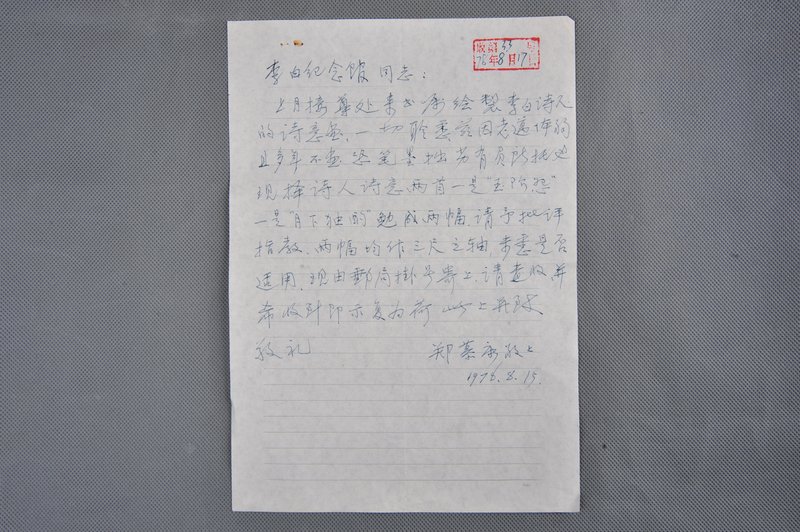 收文 33 号
78年8月17日
李白纪念馆同志：
上月接尊处来书 嘱绘製李白诗人
的诗意画、一切聆悉 兹因老迈体弱
且多年不画 恐笔墨拙劣有负所托 处
现择诗人诗意两首 一是"玉阶怨"
一是"月下独酌" 勉成两幅、请予批评
指教、两幅均作三尺立轴，未悉是否
适用、现由郵局掛号寄上、请查收 并
希收到即示复为荷 此上 并致
敬礼
郑慕康敬上
1978.8.15.